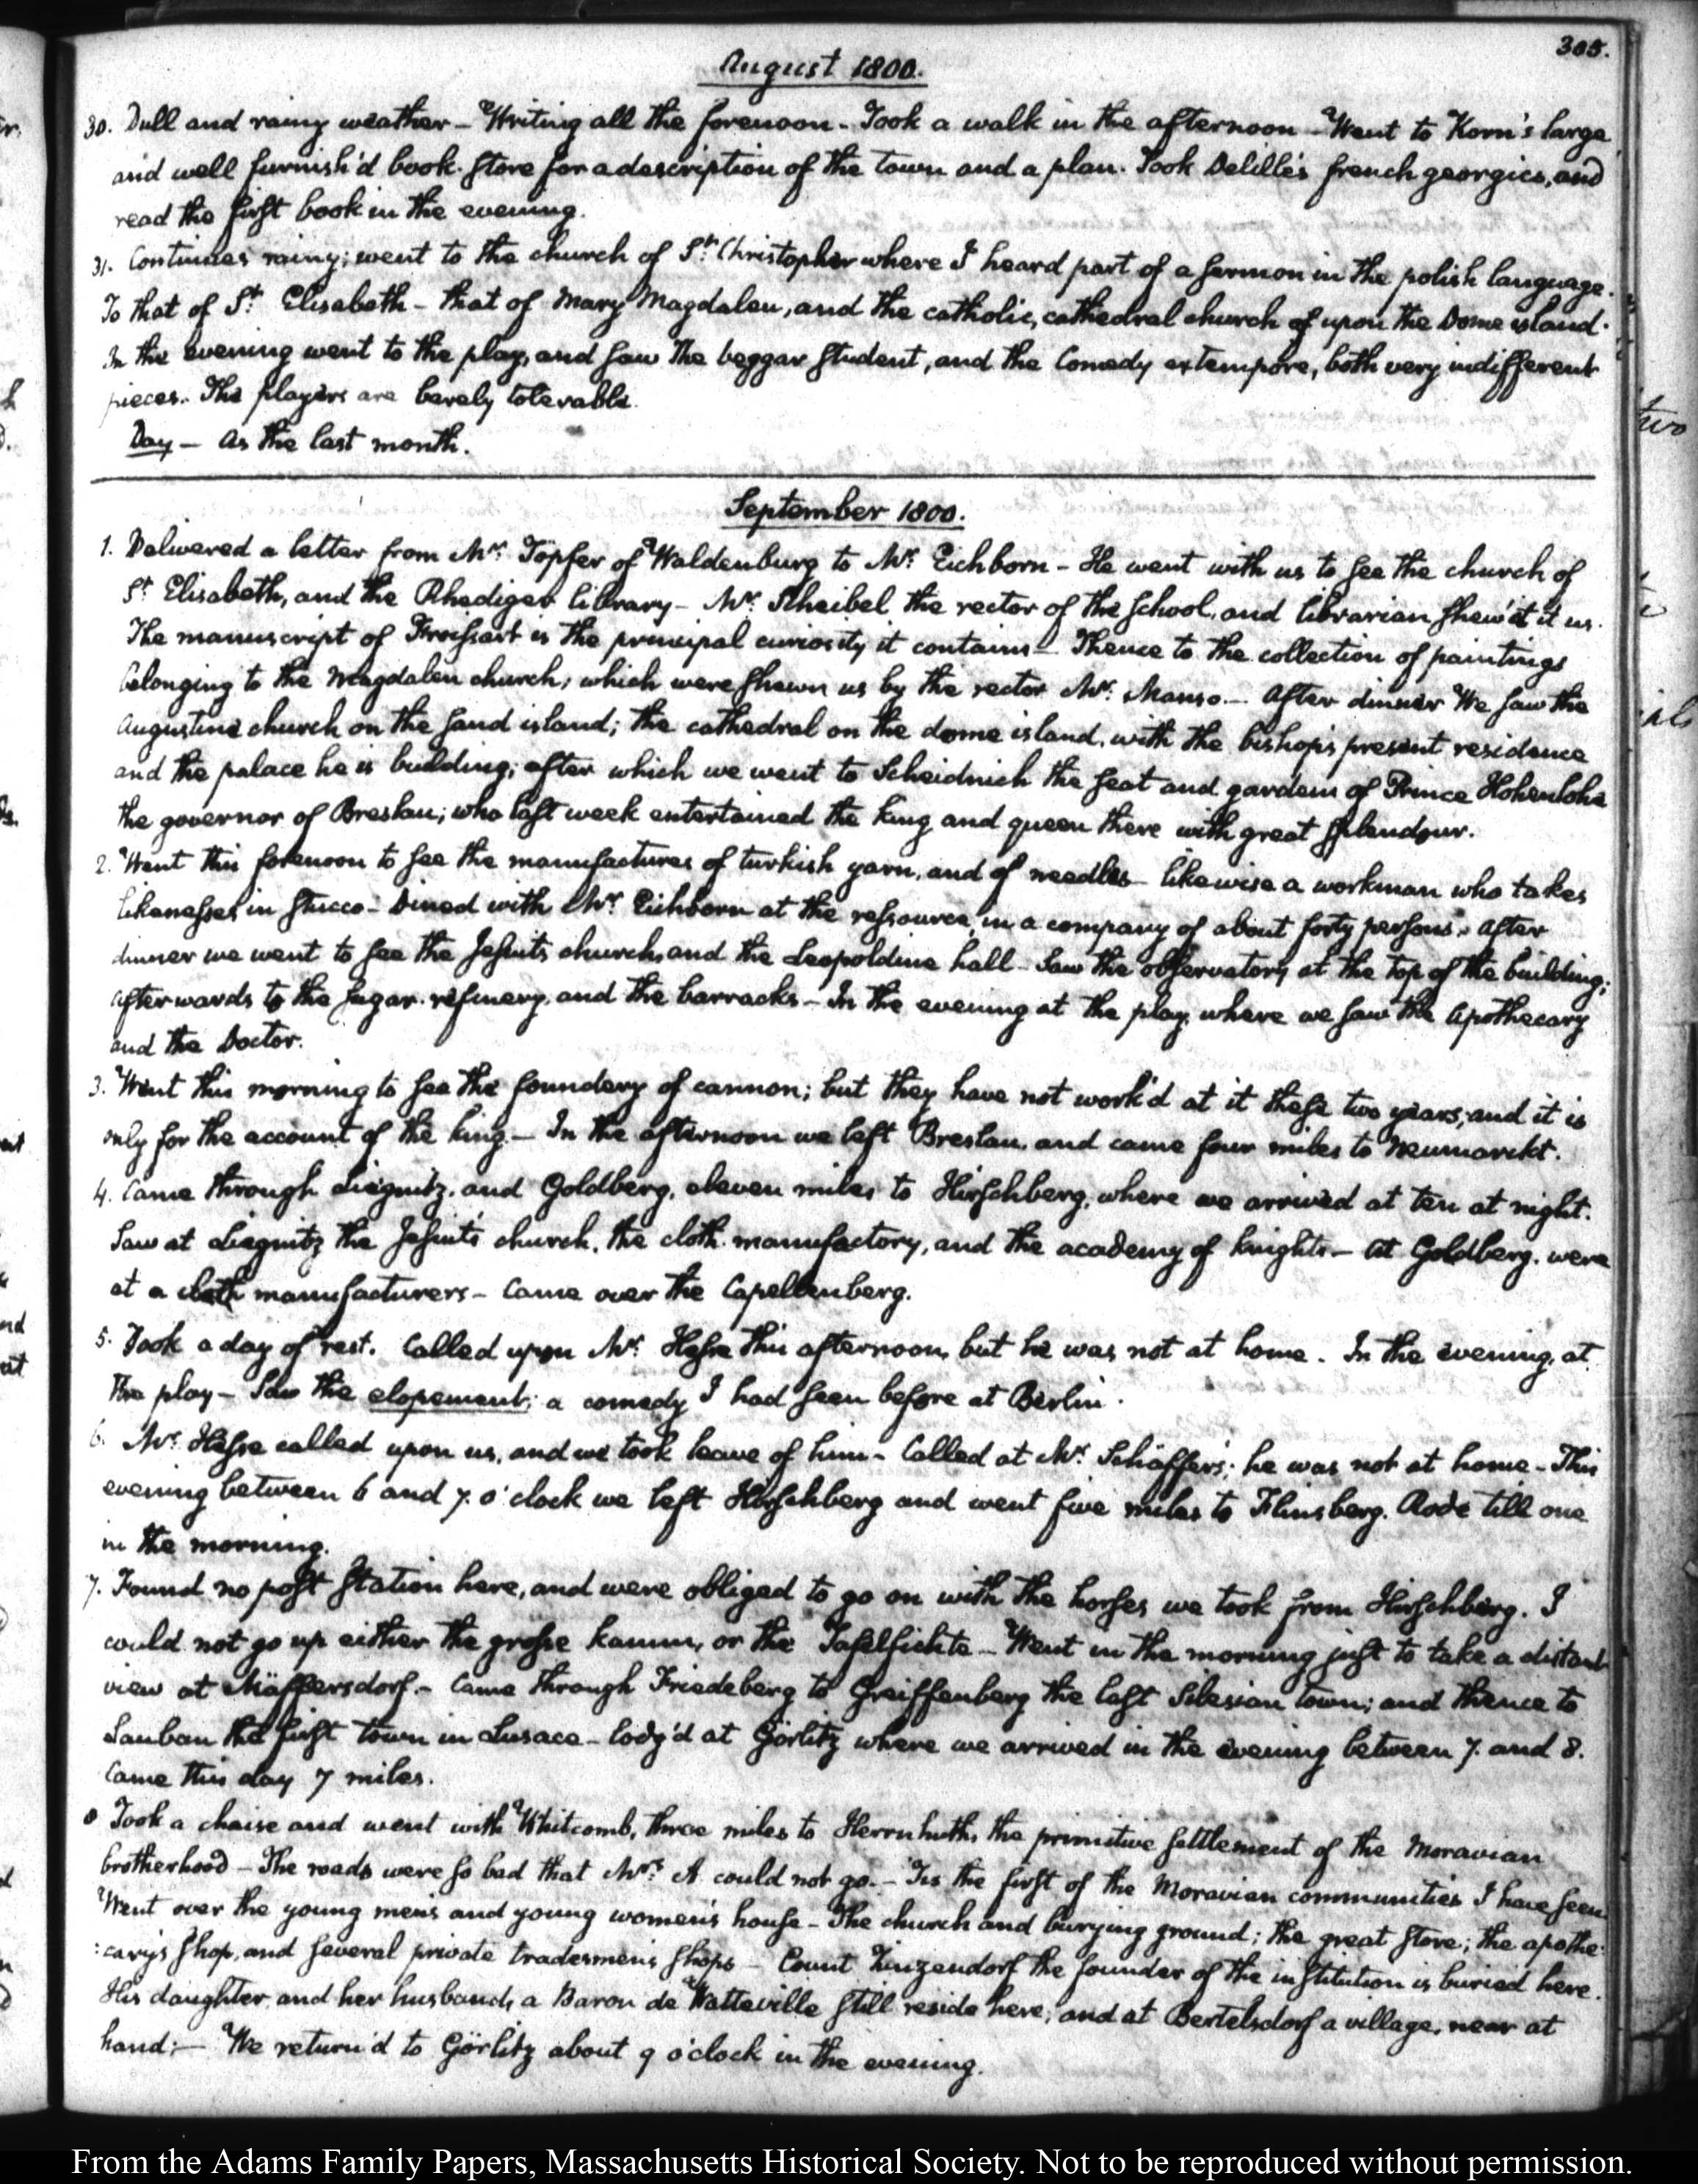 305.
August 1800.
30. Dull and rainy weather – Writing all the forenoon – Took a walk in the afternoon – Went to Korn's large
and well furnish'd book-store for a description of the town and a plan. Took Delille's french georgics, and
read the first book in the evening.
31. Continues rainy; went to the church of St. Christopher where I heard part of a sermon in the polish language.
To that of St. Elisabeth – that of Mary Magdalen, and the catholic, cathedral church of upon the Dome island.
In the evening went to the play, and saw the beggar student, and the Comedy extempore, both very indifferent
pieces. The players are barely tolerable.
Day – As the last month.
September 1800.
1. Delivered a letter from Mr. Töpfer of Waldenburg to Mr. Eichborn – He went with us to see the church of
St. Elisabeth, and the Rhediger library – Mr. Scheibel the rector of the school, and librarian shew'd it us.
The manuscript of Froissart is the principal curiosity it contains – Thence to the collection of paintings
belonging to the Magdalen church; which were shewn us by the rector Mr. Manso. – After dinner We saw the
Augustine church on the sand island; the cathedral on the dome island, with the bishop's present residence
and the palace he is building; after which we went to Scheidnich the seat and gardens of Prince Hohenlohe
the governor of Breslau; who last week entertained the king and queen there with great splendour.
2. Went this forenoon to see the manufactures of turkish yarn, and of needles – likewise a workman who takes
likenesses in stucco – Dined with Mr. Eichborn at the ressource, in a company of about forty persons. After
dinner we went to see the Jesuits church, and the Leopoldine hall – Saw the observatory at the top of the building;
afterwards to the sugar-refinery, and the barracks – In the evening at the play, where we saw the Apothecary
and the Doctor.
3. Went this morning to see the foundery of cannon; but they have not work'd at it these two years; and it is
only for the account of the king – In the afternoon we left Breslau, and came four miles to Neumarckt.
4. Came through Liegnitz, and Goldberg, eleven miles to Hirschberg, where we arrived at ten at night.
Saw at Liegnitz the Jesuits' church, the cloth-manufactory, and the academy of knights – At Goldberg, were
at a cloth manufacturers – Came over the Capellenberg.
5. Took a day of rest. Called upon Mr. Hesse this afternoon, but he was not at home. In the evening, at
the play – Saw the elopement; a comedy I had seen before at Berlin.
6. Mr. Hesse called upon us, and we took leave of him – Called at Mr. Schäffer's; he was not at home – This
evening between 6 and 7. o'clock we left Hirschberg and went five miles to Flinsberg. Rode till one
in the morning.
7. Found no post station here, and were obliged to go on with the horses we took from Hirschberg. I
could not go up either the grosse kamm, or the Tafelfichte – Went in the morning just to take a distant
view at Mäffersdorf – Came through Friedeberg to Greiffenberg the last Silesian town; and thence to
Lauban the first town in Lusace – lodg'd at Görlitz where we arrived in the evening between 7. and 8.
Came this day 7 miles.
8 Took a chaise and went with Whitcomb, three miles to Herrnhuth, the primitive settlement of the Moravian
brotherhood – The roads were so bad that Mrs. A. could not go. – 'Tis the first of the Moravian communities I have seen.
Went over the young men's and young women's house – The church and burying ground; the great store; the apothe-
:cary's shop, and several private tradesmen's shops – Count Zinzendorf the founder of the institution is buried here.
His daughter, and her husband, a Baron de Watteville still reside here; and at Bertelsdorf a village, near at
hand: – We return'd to Görlitz about 9 o'clock in the evening.
two
From the Adams Family Papers, Massachusetts Historical Society. Not to be reproduced without permission.